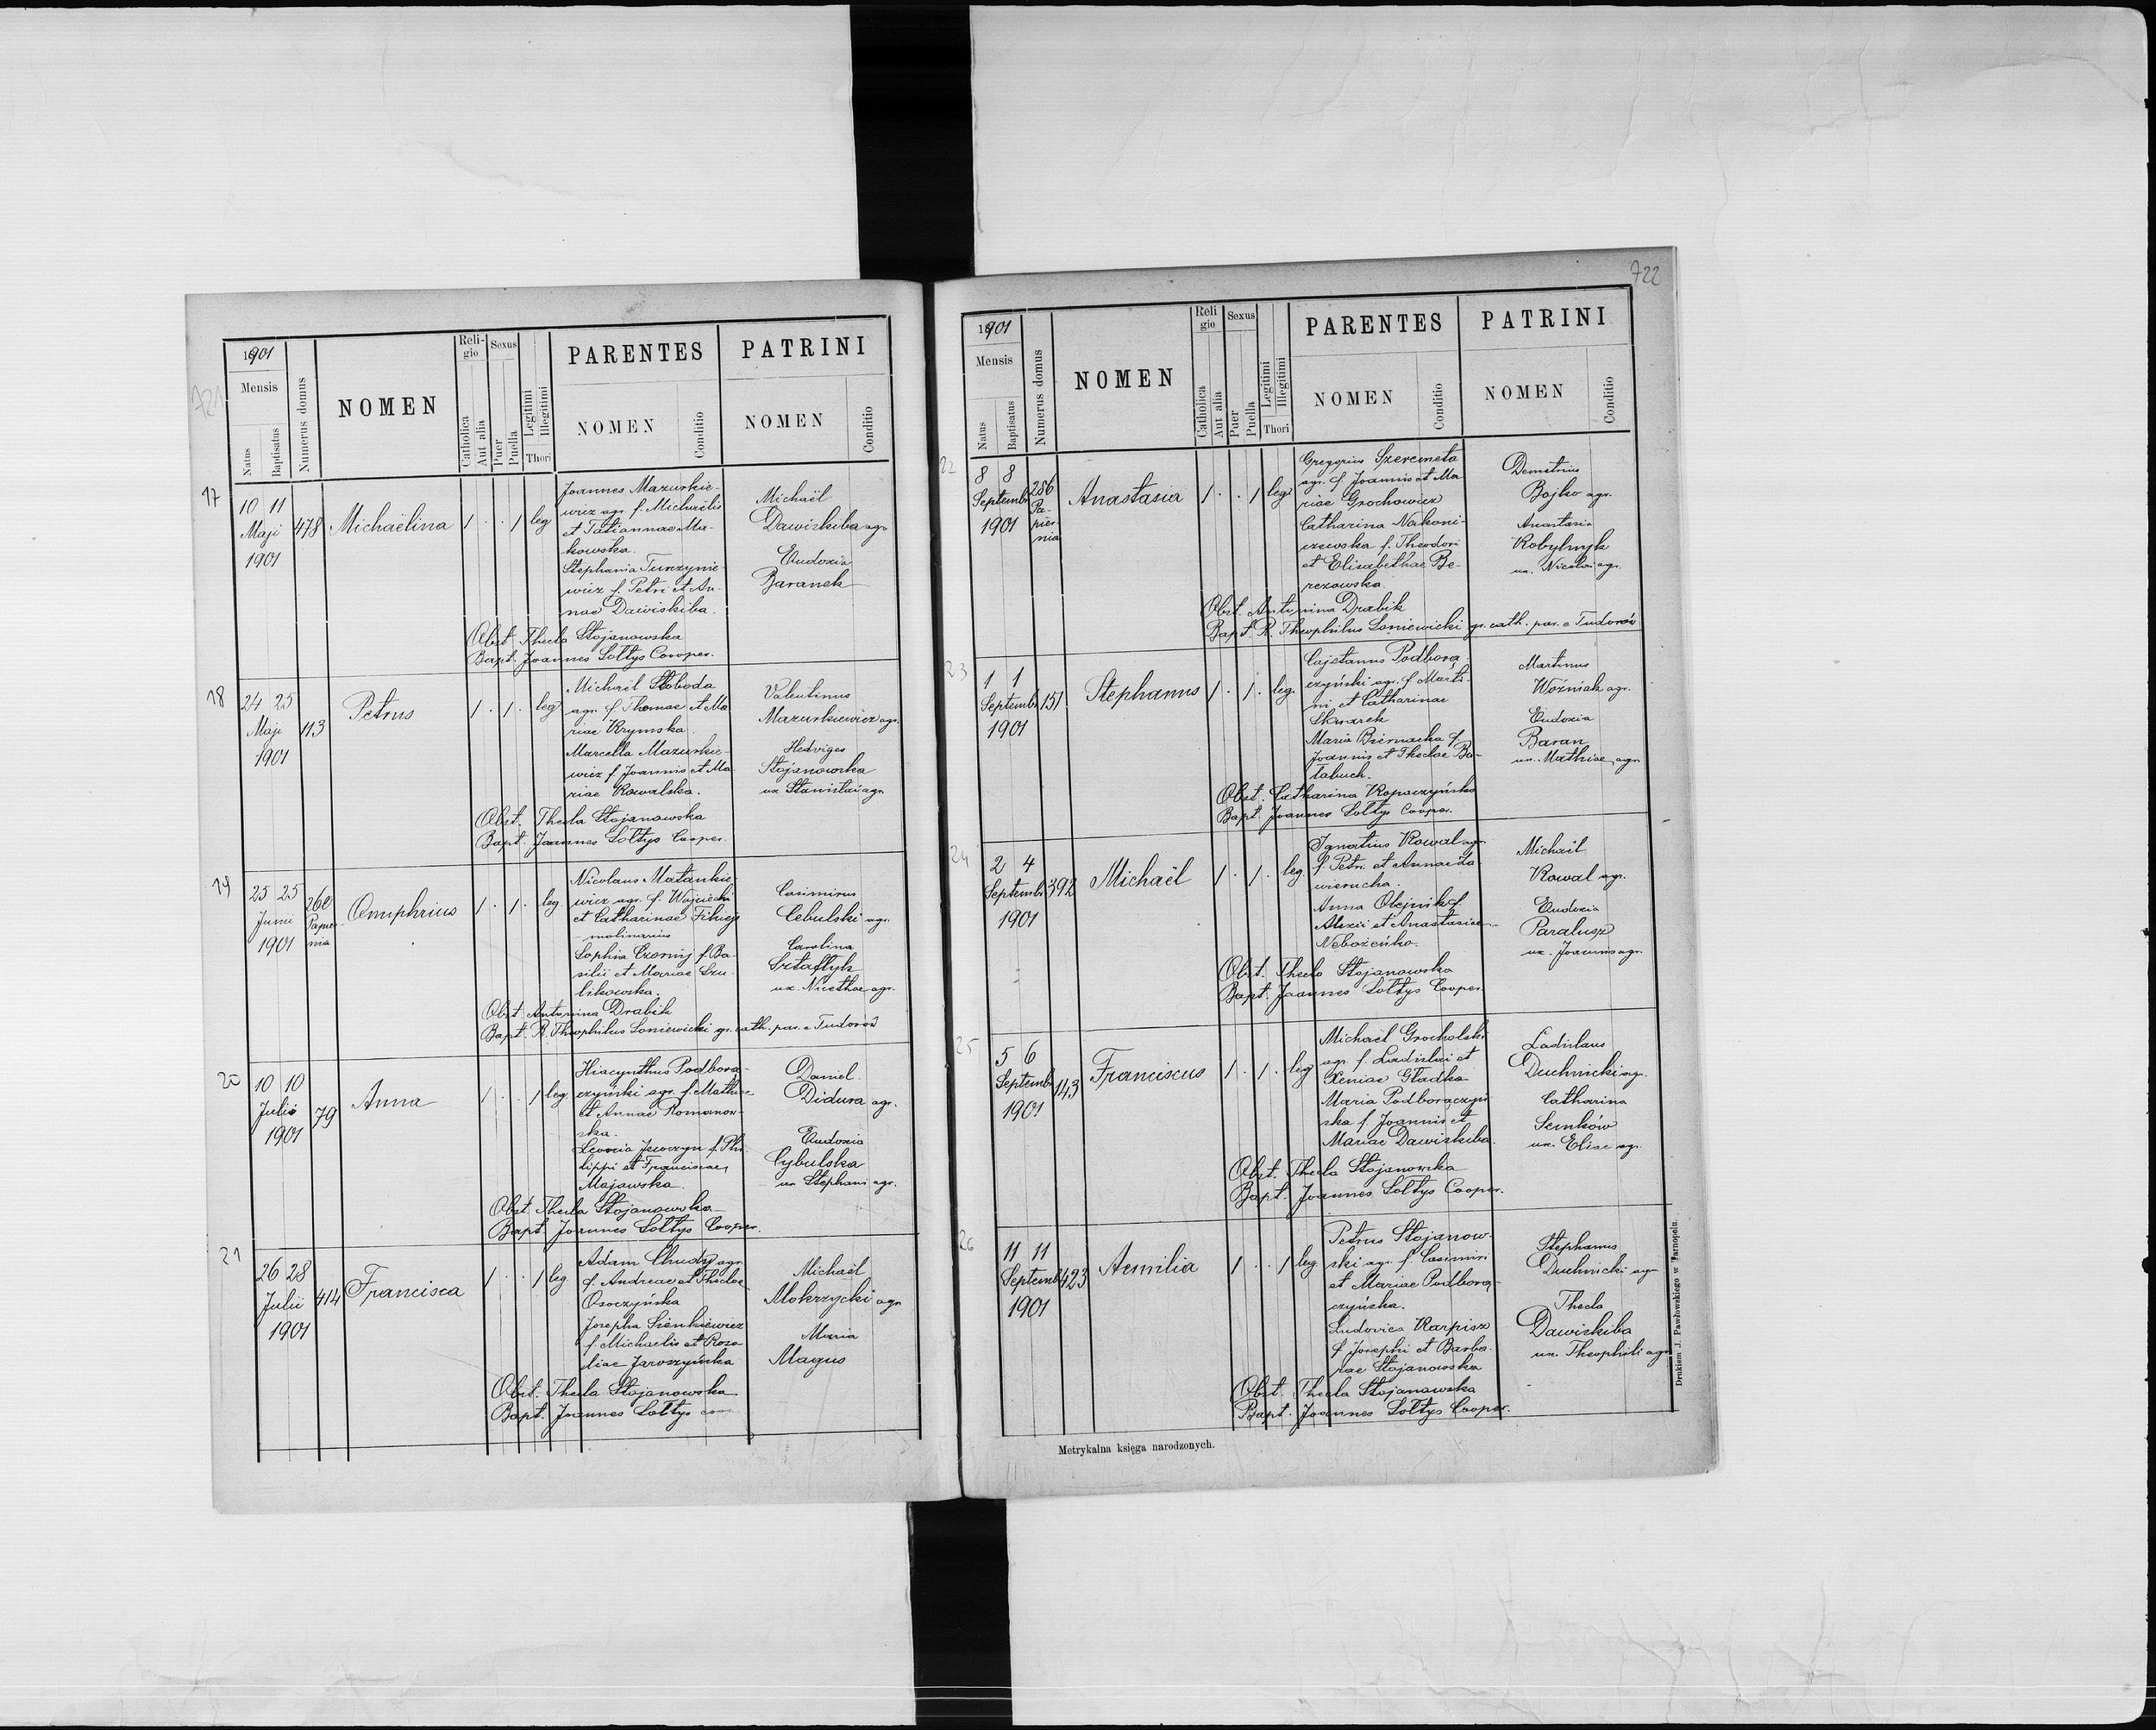 721
1901
Mensis
Natus
Baptisatus
Numerus domus
NOMEN
Reli-
gio
Catholica
Aut alia
Sexus
Puer
Puella
Legitimi
Illegitimi
Thori
PARENTES
NOMEN
Conditio
PATRINI
NOMEN
Conditio
17
10 11
Maji
1901
478
Michaëlina
1 . . 1 leg
Joannes Mazurkie-
wicz agr. f. Michaelis
et Tatiannae Ma-
kowska.
Stephania Turczynie
wicz f. Petri et An-
nae Dawiskiba.
Michaël
Dawiskiba agr
Eudoxia
Baranek
Obst. Thecla Stojanowska
Bapt. Joannes Sołtys Cooper.
18
24 25
Maji
1901
113
Petrus
1 . 1 . leg
Michaël Słoboda
agr. f. Thomae et Ma
riae Krymska
Marcella Mazurkie-
wicz f Joannis et Ma
riae Kowalska.
Valentinus
Mazurkiewicz agr.
Hedviges
Stojanowska
ux Stanislai agr
Obst. Thecla Stojanowska
Bapt. Joannes Sołtys Cooper.
19
25 25
Junii
1901
260
Papier
nia
Onuphrius
1 . 1 . leg.
Nicolaus Matankie-
wicz agr. f. Wojciechi
et Catharinae
molinarius
Sophia Czornij f. Ba-
silii et Mariae Szu-
likowska.
Casimirus
Cebulski agr.
Carolina
Sztaflyk
ux. Nicethae agr.
Obst. Antonina Drabik
Bapt. R. Theophilus Soniewicki gr. cath. par. e Tudorów
20
10 10
Julii
1901
79
Anna
1 . . 1 leg
Hiacynthus Podborą-
czyński agr. f. Mathiae
et Annae Romanow-
ska.
f. Phi
lippi et Franciscae
Majewska
Daniel
Didura agr.
Eudoxia
Cybulska
ux Stephani agr.
Obst. Thecla Stojanowska
Bapt. Joannes Sołtys Cooper.
21
26 28
Julii
1901
414
Francisca
1 . . 1 leg
Adam Chudy agr
f. Andreae et Theclae
Osoczyńska
Josepha Sienkiewicz
f. Michaelis et Rosa
liae Jaroszyńska
Michaël
Mokrzycki agr
Maria
Magus
Obst. Thecla Stojanowska
Bapt. Joannes Sołtys
722
1901
Mensis
Natus
Baptisatus
Numerus domus
NOMEN
Reli
gio
Catholica
Aut alia
Sexus
Puer
Puella
Legitimi
Illegitimi
Thori
PARENTES
NOMEN
Conditio
PATRINI
NOMEN
Conditio
22
8 8
Septemb.
1901
286
Pa-
pier-
nia
Anastasia
1 . . 1 leg
Gregorius Szeremeta
agr. f. Joannis et Ma
riae Grochowicz
Catharina Nakoni-
czewska f. Theodori
et Elisabethae Be-
rezowska
Demetrius
Bojko agr.
Anastasia
Kobylnyk
ux. Nicolai agr.
Obst. Antonina Drabik
Bapt. R. Theophilus Soniewicki gr. cath. par. e Tudorów
23
1 1
Septemb.
1901
151
Stephanus
1 . 1 . leg.
Cajetanus Podborą-
czyński agr. f Marti-
ni et Catharinae
Skwarek
Maria Biernacka f.
Joannis et Theclae Ba-
łabuch.
Martinus
Woźniak agr.
Eudoxia
Baran
ux. Mathiae agr
Obst. Catharina Kopaczyńska
Bapt. Joannes Sołtys Cooper.
24
2 4
Septemb.
1901
392
Michaël
1 . 1 . leg.
Ignatius Kowal agr
f. Petri et Annae Za-
wierucha.
Anna Olejnik f.
Alexii et Anastasiae
Nebożeńko.
Michaël
Kowal agr.
Eudoxia
Paralusz
ux. Joannis agr.
Obst. Thecla Stojanowska
Bapt. Joannes Sołtys Cooper.
25
5 6
Septemb.
1901
143
Franciscus
1 . 1 . leg
Michael Grocholski
agr. f. Ladislai et
Xeniae Gładka
Maria Podborączyń
ska f. Joannis et
Mariae Dawiskiba.
Ladislaus
Duchnicki agr.
Catharina
Semków
ux. Eliae agr.
Obst. Thecla Stojanowska
Bapt. Joannes Sołtys Cooper.
26
11 11
Septemb.
1901
423
Aemilia
1 . . 1 leg
Petrus Stojanow-
ski agr. f Casimiri
et Mariae Podborą-
czyńska.
Ludovica Karpisz
f Josephi et Barba-
rae Stojanowska
Stephanus
Duchnicki agr
Thecla
Dawiskiba
ux. Theophili agr
Obst. Thecla Stojanowska
Bapt. Joannes Sołtys Cooper.
Metrykalna księga narodzonych.
Drukiem J. Pawłowskiego w Tarnopolu.